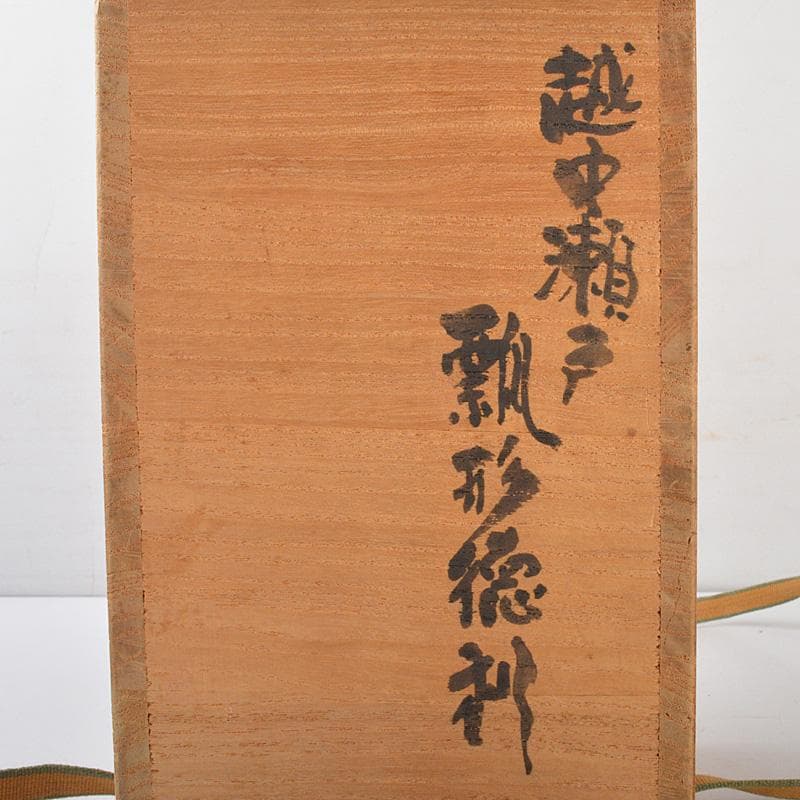 越中瀬戸
瓢形徳利